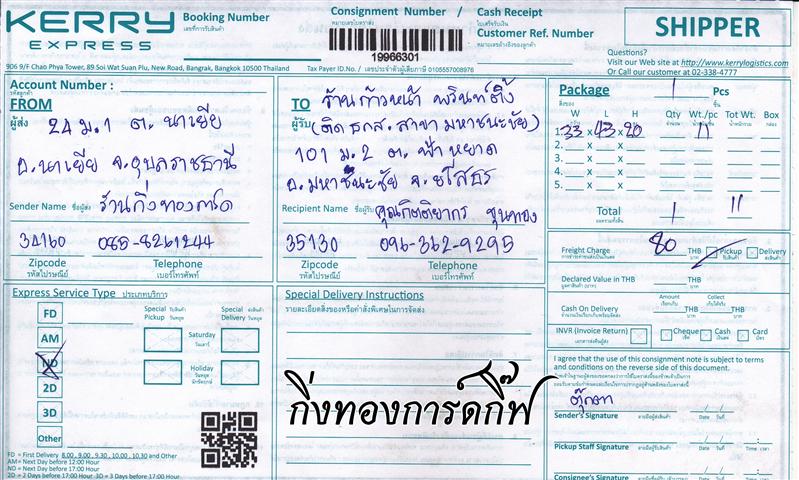 KERRY
EXPRESS
Booking Number
เลขที่การรับสินค้า
Consignment Number /
หมายเลขใบตราส่ง
19966301
Cash Receipt
ใบเสร็จรับเงิน
Customer Ref. Number
หมายเลขอ้างอิงของลูกค้า
SHIPPER
Questions?
Visit our Web site at http://www.kerrylogistics.com
Or Call our customer at 02-338-4777
906 9/F Chao Phya Tower, 89 Soi Wat Suan Plu, New Road, Bangrak, Bangkok 10500 Thailand
Tax Payer ID.No. / เลขประจำตัวผู้เสียภาษี 0105557008976
Account Number :
รหัสลูกค้า
FROM
ผู้ส่ง
24 ม.1 ต. นาเยีย
อ.นาเยีย จ.อุบลราชธานี
Sender Name ชื่อผู้ส่ง ร้านกิ่งทองการ์ด
34160 085-8261244
Zipcode Telephone
รหัสไปรษณีย์ เบอร์โทรศัพท์
TO
ผู้รับ
ร้านก้าวหน้า พริ้นท์ติ้ง
(ติด ธกส. สาขา มหาชนะชัย)
101 ม.2 ต. ฟ้าหยาด
อ.มหาชนะชัย จ.ยโสธร
Recipient Name ชื่อผู้รับ คุณกิตติยากร ขุนทอง
35130 096-362-9295
Zipcode Telephone
รหัสไปรษณีย์ เบอร์โทรศัพท์
Package 1 Pcs
สิ่งของ ชิ้น
W L H Qty Wt./pc Tot Wt. Box
1. 33 x 43 x 20 11
2. x x
3. x x
4. x x
5. x x
Total 1 11
Freight Charge 80 THB Pickup Delivery
Declared Value in THB THB
Cash On Delivery Amount Collect THB
INVR (Invoice Return) Cheque Cash Card
I agree that the use of this consignment note is subject to terms
and conditions on the reverse side of this document.
ตุ๊กตา
Sender's Signature ลายมือชื่อผู้ส่ง Date วันที่
Pickup Staff Signature Date วันที่ Time เวลา
Consignee's Signature
Express Service Type ประเภทบริการ
Special Pickup รับสินค้าวันหยุด
Special Delivery ส่งสินค้าวันหยุด
FD
AM
ND
2D
3D
Other
Saturday
วันเสาร์
Holiday
วันหยุดนักขัตฤกษ์
FD = First Delivery 8.00 , 9.00 , 9.30 , 10.00 , 10.30 and Other
AM = Next Day before 12:00 Hour
ND = Next Day before 17:00 Hour
2D = 2 Days before 17:00 Hour 3D = 3 Days before 17:00 Hour
Special Delivery Instructions
รายละเอียดสิ่งของหรือคำสั่งพิเศษในการจัดส่ง
กิ่งทองการ์ดกิ๊ฟ